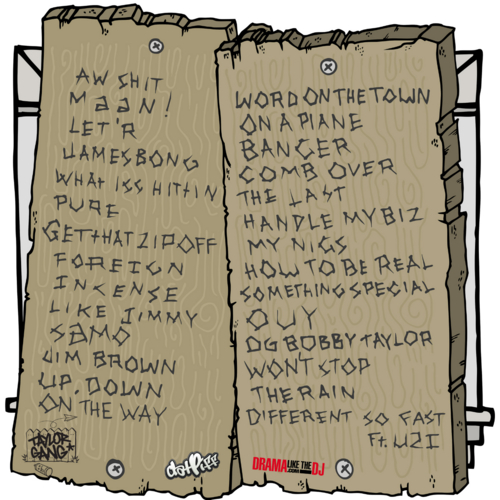 AW SHIT
MAAN!
LET'R
JAMESBONG
WHAT ISS HITTIN
PURE
GETTHATZIPOFF
FOREIGN
INCENSE
LIKE JIMMY
SAMO
JIM BROWN
UP, DOWN
ON THE WAY
TAYLOR
GANG
DatPiff
WORD ON THE TOWN
ON A PLANE
BANGER
COMB OVER
THE LAST
HANDLE MY BIZ
MY NIGS
HOW TO BE REAL
SOMETHING SPECIAL
OUY
OG BOBBY TAYLOR
WON'T STOP
THE RAIN
DIFFERENT SO FAST
Ft. UZI
DRAMA LIKE THE DJ
.COM